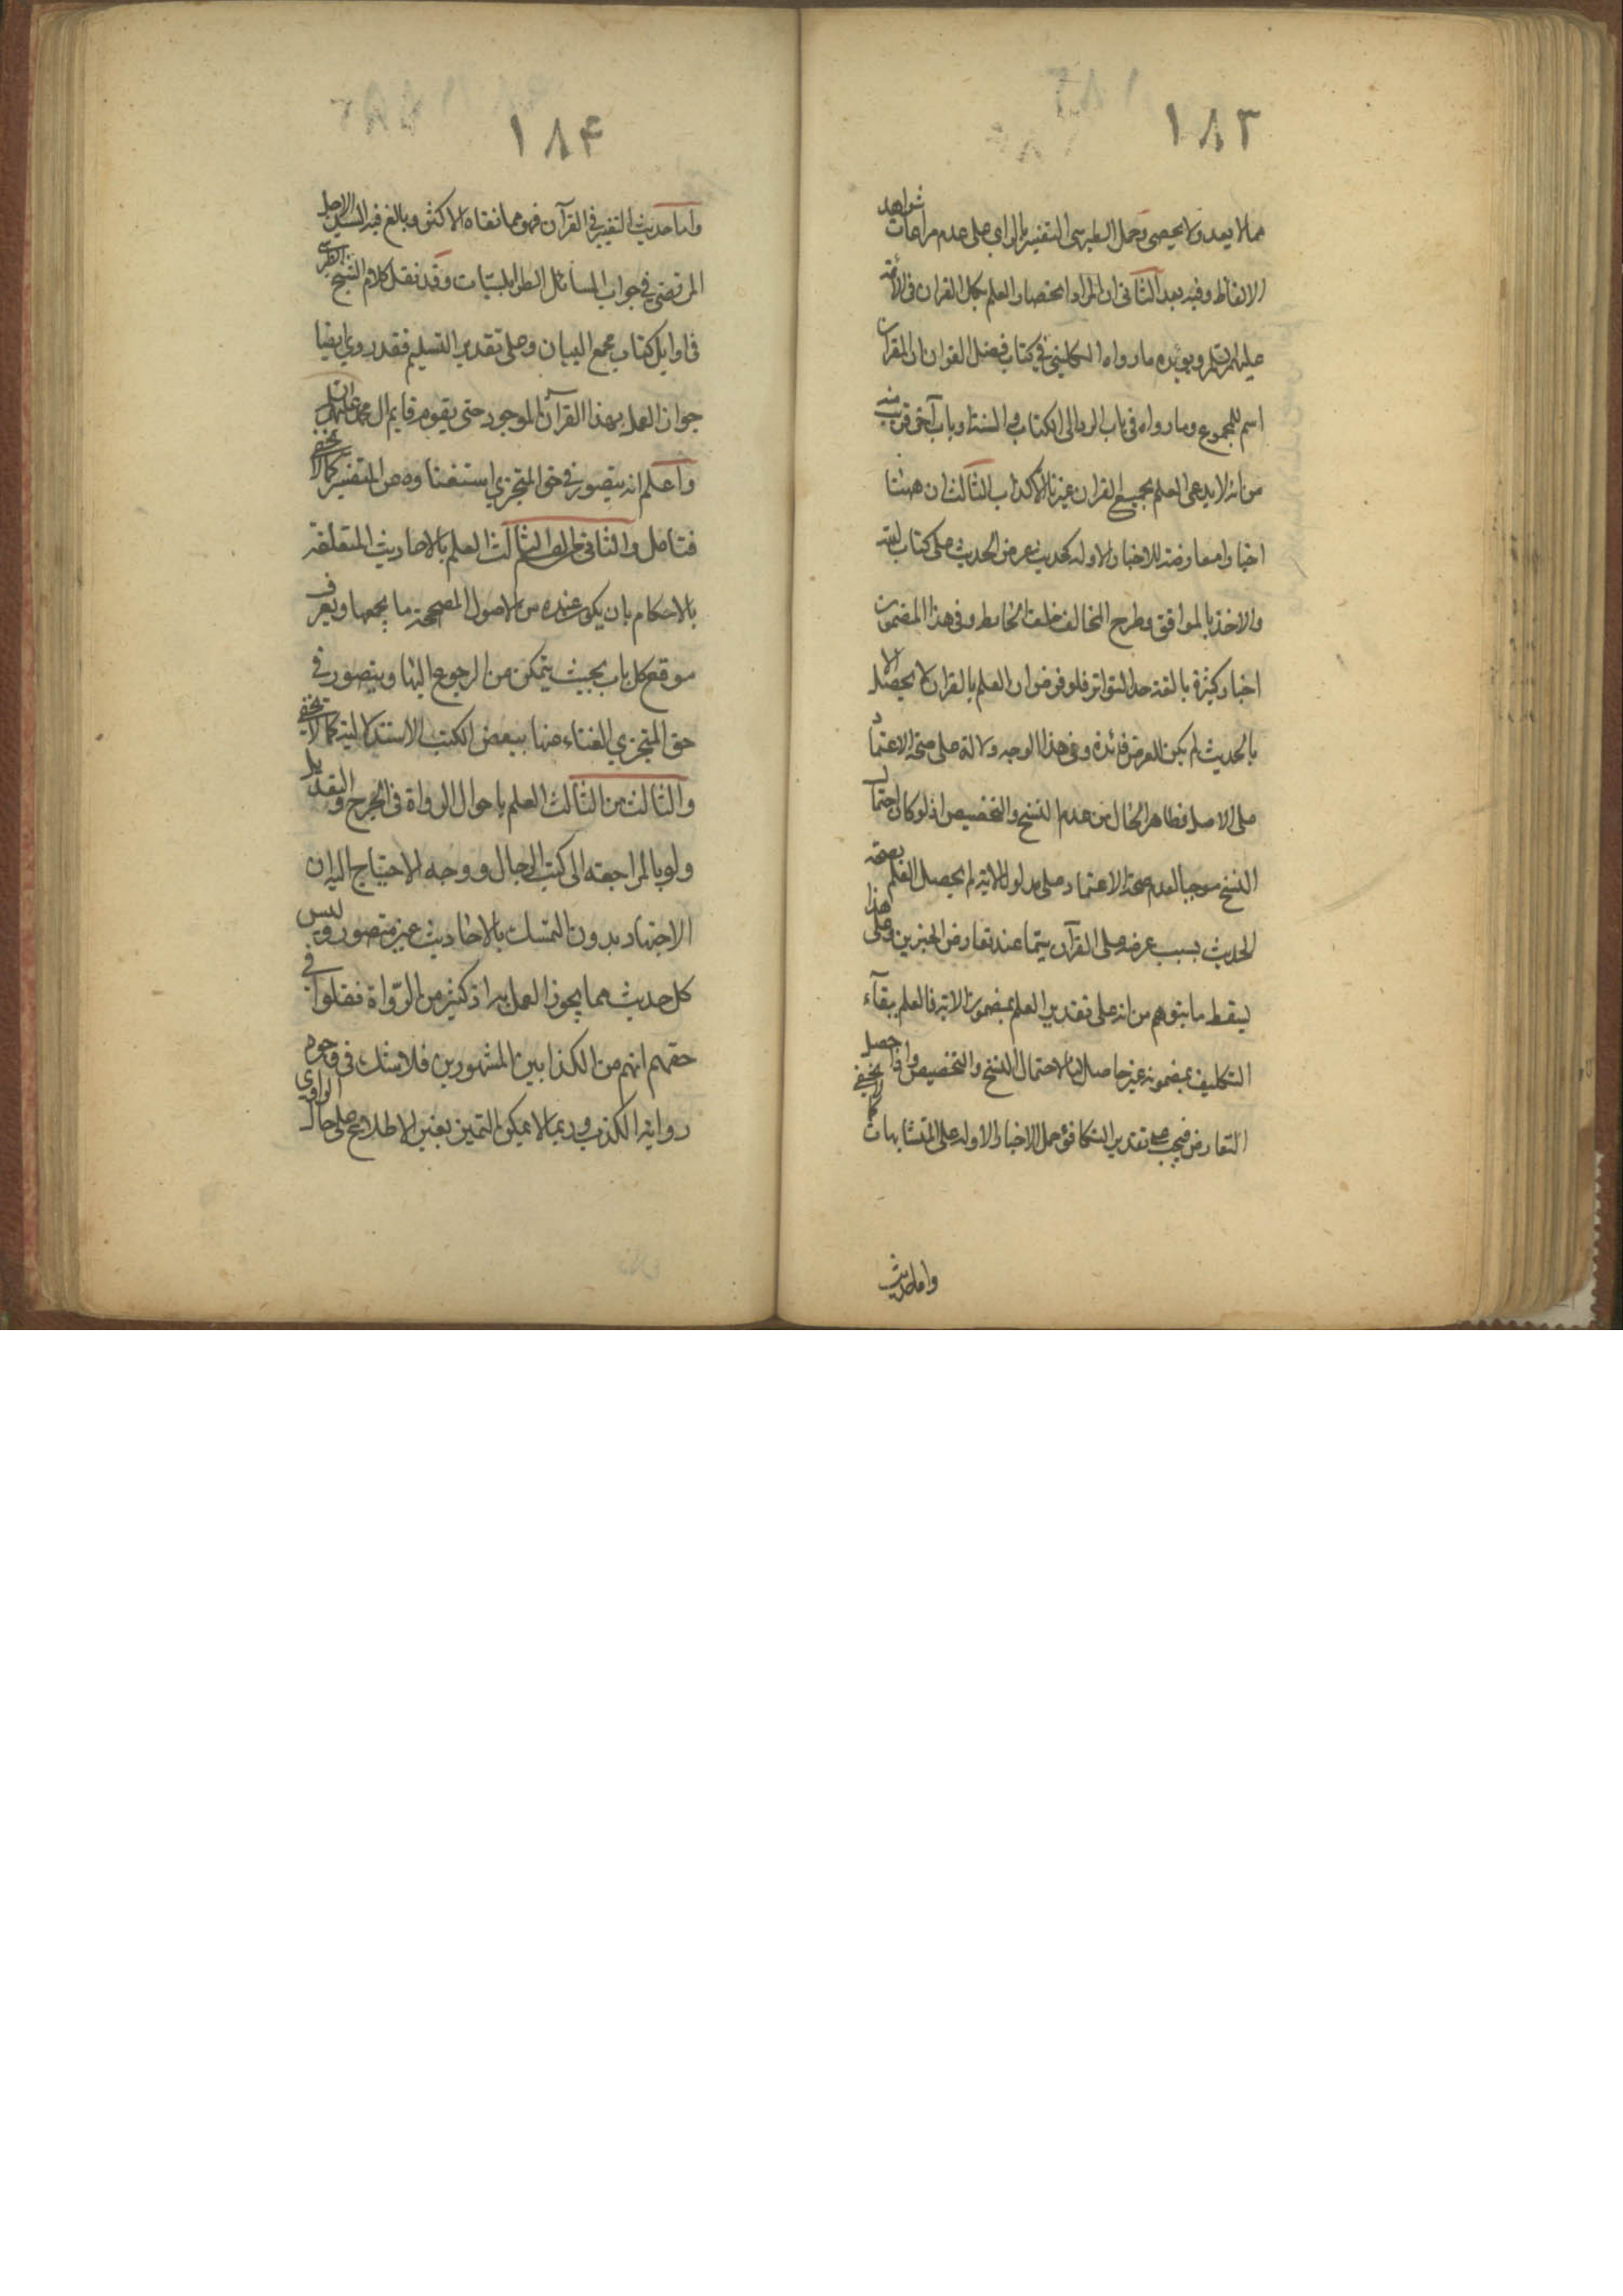 ١٨٣
مما لا يعد ولا يحصى وحمل الطبرسى التفسير بالراى على عدم مراعات شواهد
الالفاظ وفيه بعد الثانى ان المراد اختصاص العلم بكل القران فى الائمة
عليهم السلم ويؤيده ما رواه الكلينى فى كتاب فضل القران ان القران
اسم للمجموع وما رواه فى باب الرد الى الكتاب والسنة وباب آخر قريب منه
من انه لا يدعى العلم بجميع القران غيرنا الا كذاب الثالث ان ههنا
اخبارا معارضة للاخبار الاوله كحديث عرض الحديث على كتاب الله
والاخذ بالموافق وطرح المخالف خلف الحايط وفى هذا المضمون
اخبار كثيرة بالغة حد التواتر فلو فرض ان العلم بالقران لا يحصل الا
بالحديث لم يكن للعرض فائدة وفى هذا الوجه دلالة على صحة الاعتماد
على الاصل فظاهر الحال من عدم النسخ والتخصيص اذ لو كان احتمال
النسخ موجبا لعدم صحة الاعتماد على مدلول الاية لم يحصل العلم بصحة
الحديث بسبب عرضه على القرآن سيما عند تعارض الخبرين وعلى هذا
يسقط ما يتوهم من انه على تقدير العلم بمضمون الاية فالعلم ببقآء
التكليف بمضمونه غير حاصل لنا لاحتمال النسخ والتخصيص واذا حصل
التعارض فيجب على تقدير التكافؤ حمل الاخبار الاوله على المتشابهات كما لا يخفى
واما حديث
١٨۴
واما حديث التغيير فى القرآن فهو مما نفاه الاكثر وبالغ فيه السيد الاجل
المرتضى فى جواب المسائل الطرابلسيات وقد نقل كلام الشيخ الطبرسى
فى اوايل كتاب مجمع البيان وعلى تقدير التسليم فقد روى ايضا
جواز العمل بهذا القرآن الموجود حتى يقوم قايم ال محمد عليهم السلم
واعلم انه يتصور فى حق المتجزي استغناوه عن التفسير كما لا يخفى
فتامل والثانى من الثالث العلم بالاحاديث المتعلقة
بالاحكام بان يكون عنده من الاصول المصححة ما يجمعها ويعرف
موقع كل باب بحيث يتمكن من الرجوع اليها ويتصور فى
حق المتجزي الغناء عنها ببعض الكتب الاستدلالية كما لا يخفى
والثالث من الثالث العلم باحوال الرواة فى الجرح والتعديل
ولو بالمراجعة الى كتب الرجال ووجه الاحتياج اليه ان
الاجتهاد بدون التمسك بالاحاديث غير متصور وليس
كل حديث مما يجوز العمل به اذ كثير من الرواة نقلوا فى
حقهم انهم من الكذابين المشهورين فلا شك فى وجود
رواية الكذب وربما لا يمكن التميز بغير الاطلاع على حال الراوى